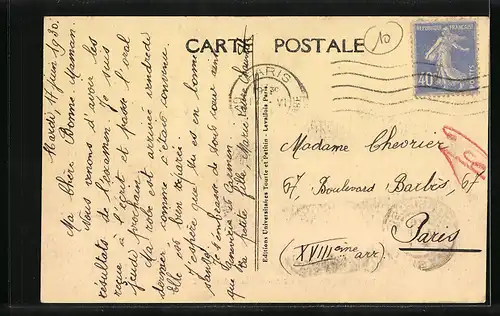 CARTE POSTALE
10
REPUBLIQUE FRANÇAISE
40
PARIS
Mardi 17 juin 1930.
Ma chère Bonne Maman
Nous venons d'avoir les
résultats de l'examen. Je suis
reçue à l'écrit et passe l'oral
jeudi prochain.
Ma robe est arrivée vendredi
dernier comme c'était convenu.
Elle est bien réparée
J'espère que tu es en bonne
santé.
Je t'embrasse de tout cœur ainsi
que
Ta petite fille Marie
Editions Universitaires Tourte et Petitin - Levallois Paris
Madame Chevrier
67, Boulevard Barbès, 67
Paris
(XVIIIème arr)